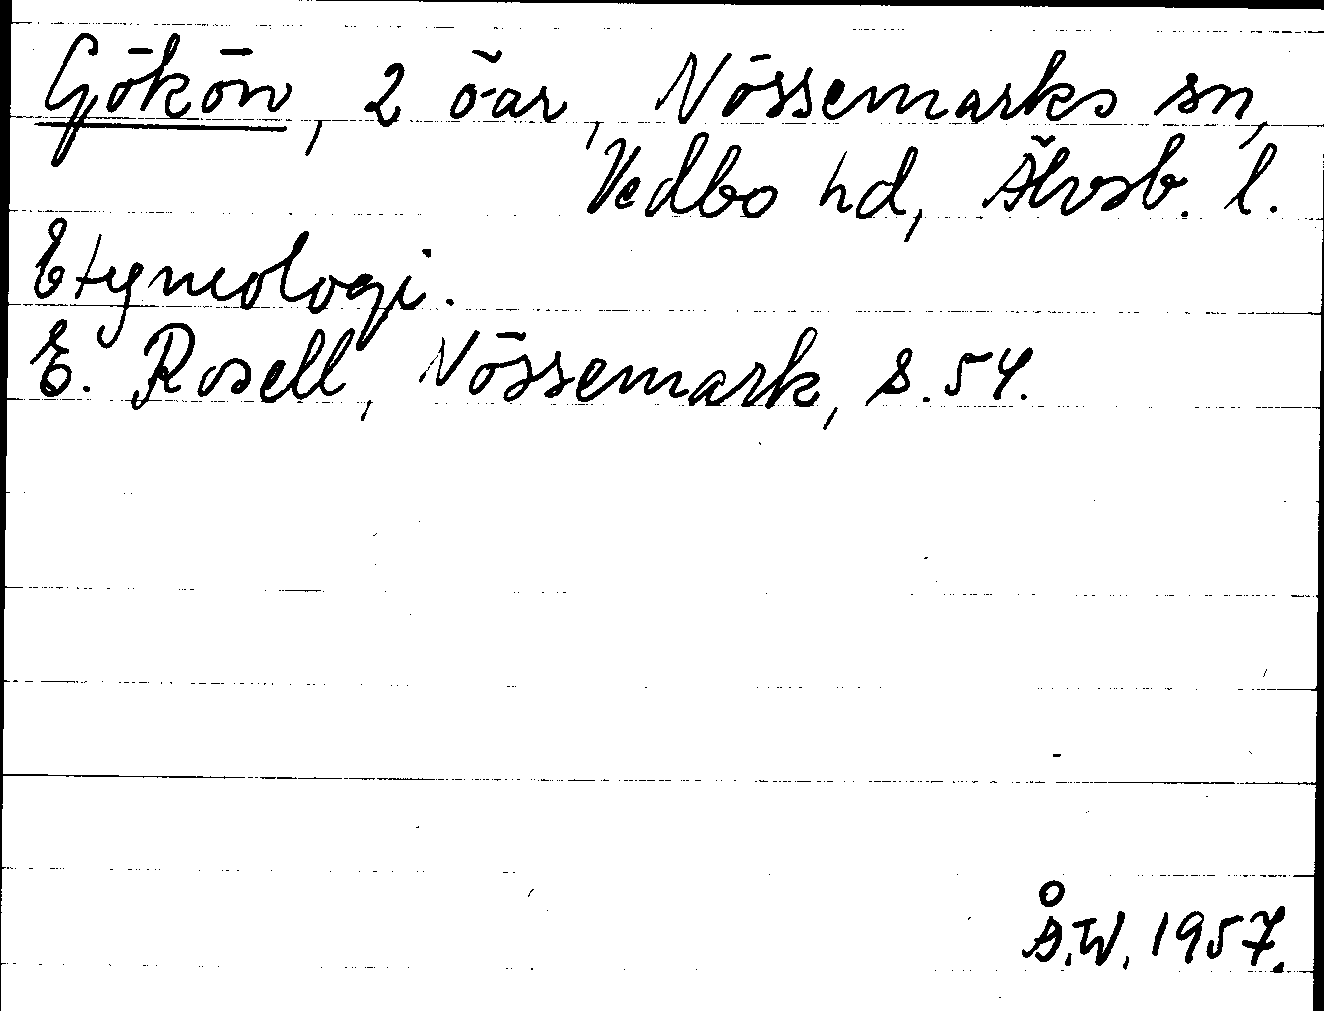 Gökön, 2 öar, Nössemarks sn,
Vedbo hd, Älvsb. l.
Etymologi.
E. Rosell, Nössemark, s. 54.
Å.W. 1957.